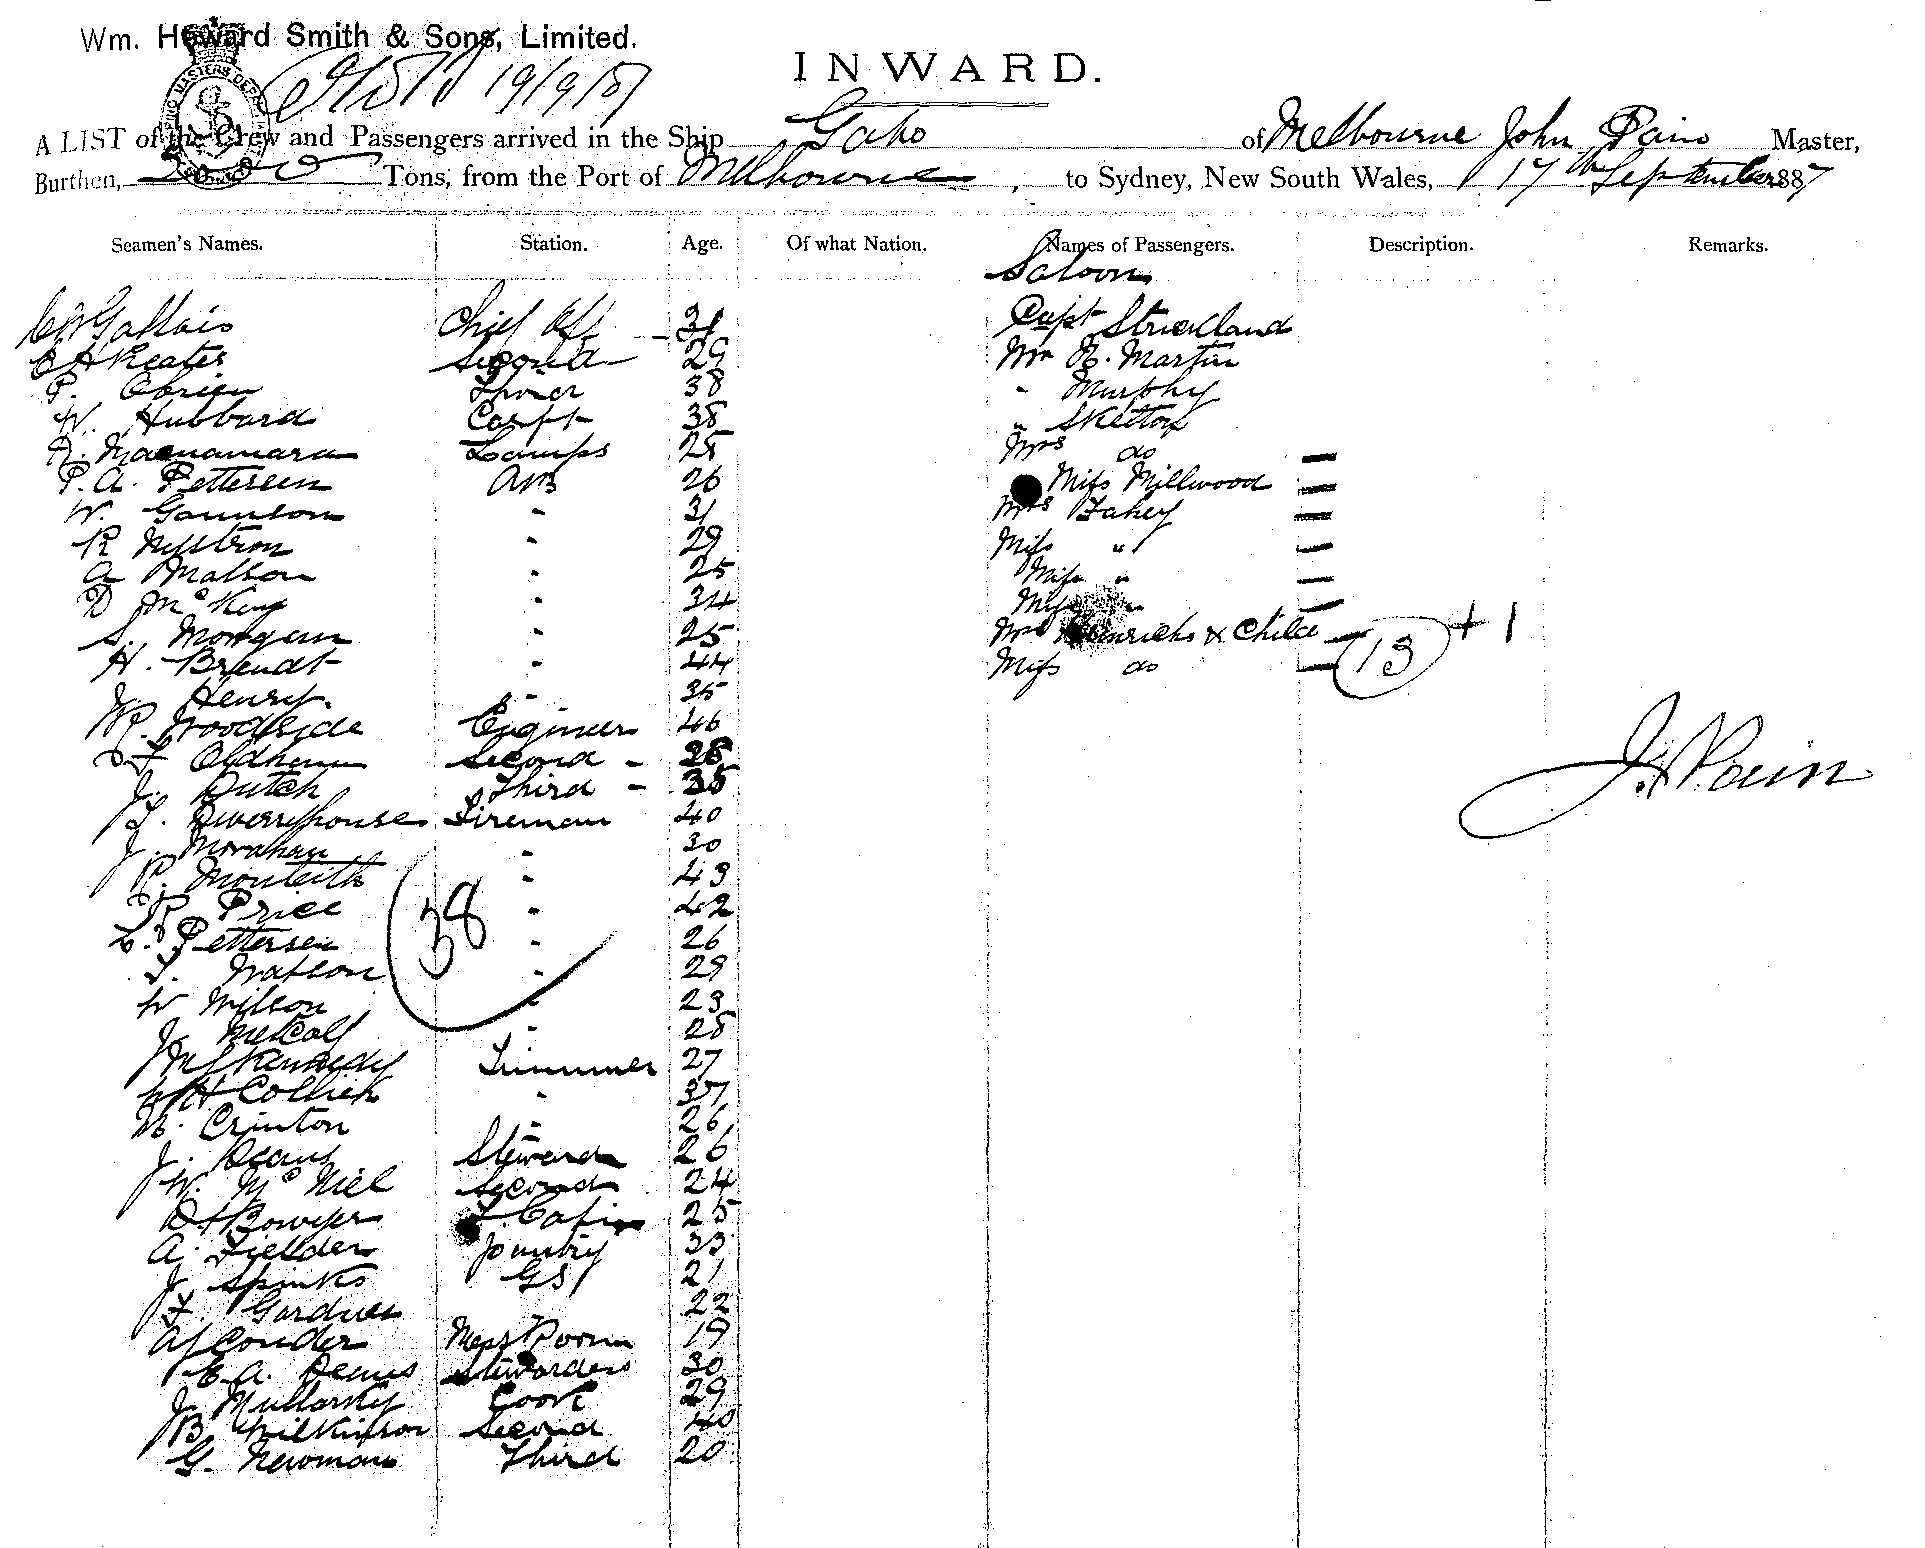 Wm. Howard Smith & Sons, Limited.
19/9/87
INWARD.
A LIST of the Crew and Passengers arrived in the Ship Gabo of Melbourne John Pain Master,
Burthen, Tons, from the Port of Melbourne, to Sydney, New South Wales, 17th September 1887
Seamen's Names. Station. Age. Of what Nation. Names of Passengers. Description. Remarks.
Saloon
Chief Off 31 Capt Strickland
C H Keates Second 29 Mr R. Martin
P. Obrien 38 " Murphy
W. Hubbard Carpt 38 " Skelton
Macnamara Lamps 25 Mrs do
P. A. Pettersen AB 26 Miss Millwood
W. " 31 Mrs Fahey
R " 29 Miss "
A Matson " 25 Miss "
D McKay " 34 Miss "
S. Morgan " 25 Mrs Heinrichs & Child
H. Brendt " 44 Miss do
13 + 1
J. Henry. " 35
Woodside Engineer 46
Oldham Second - 28
J. Pain
J. Dutch Third - 35
Fireman 40
J. Morahan " 30
R. Monteith " 43
Price " 42
38
Pettersen " 26
Watson " 29
W Wilson " 23
J. Metcalf " 28
Kennedy Trimmer 27
Collick " 37
Crinton " 26
J. Deans Steward 26
W. McNiel Second 24
Bowyer F. Cabin 25
A. Fielder pantry 33
J. Spinks GS 21
F. Gardner 22
A J Conder Mess Room 19
E. A. Deans Stewardess 30
J. Mullarky Cook 29
B. Wilkinson Second 40
G. Newman Third 20